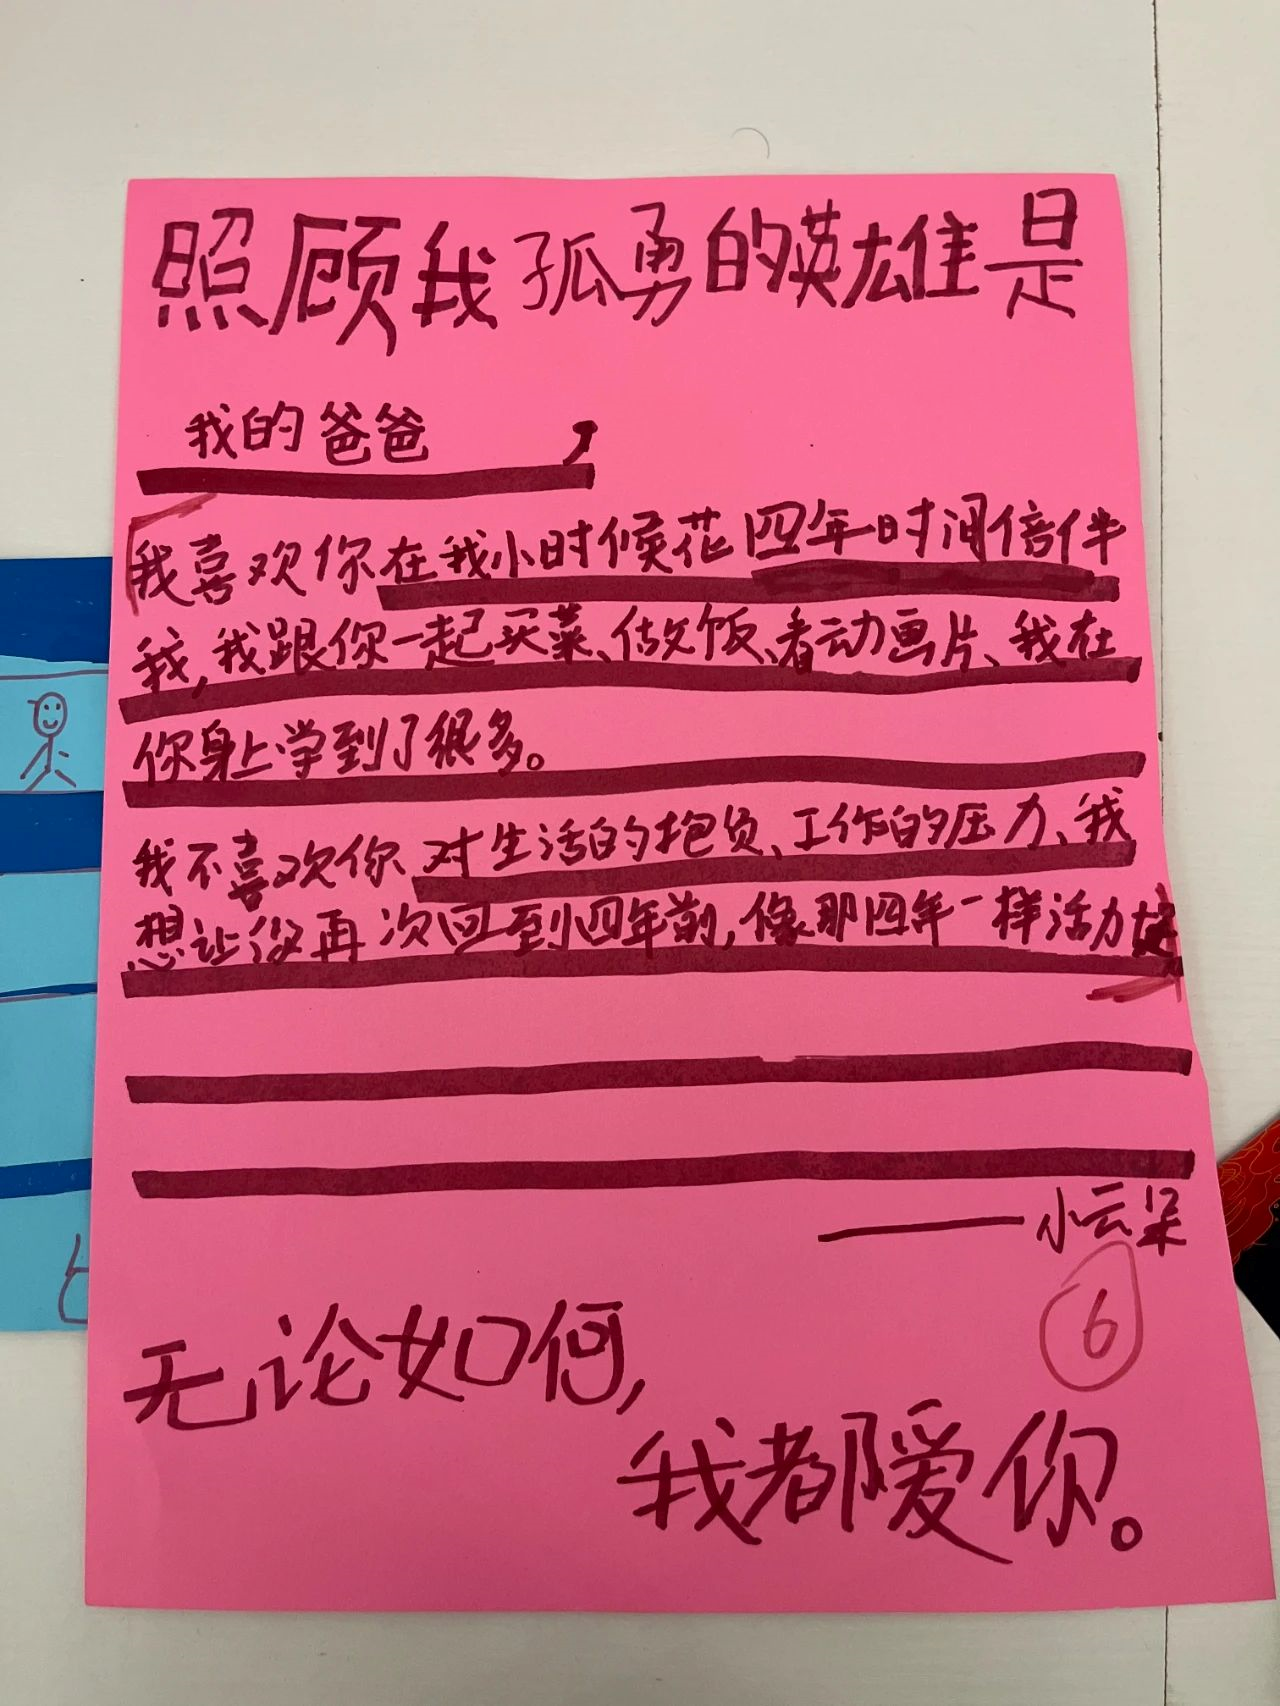 照顾我孤勇的英雄是
我的爸爸,
我喜欢你在我小时候花四年时间倍伴
我,我跟你一起买菜、做饭、看动画片、我在
你身上学到了很多。
我不喜欢你对生活的抱负、工作的压力、我
想让没再次回到四年前,像那四年一样活力
——小云朵
6
无论如何,
我都爱你。